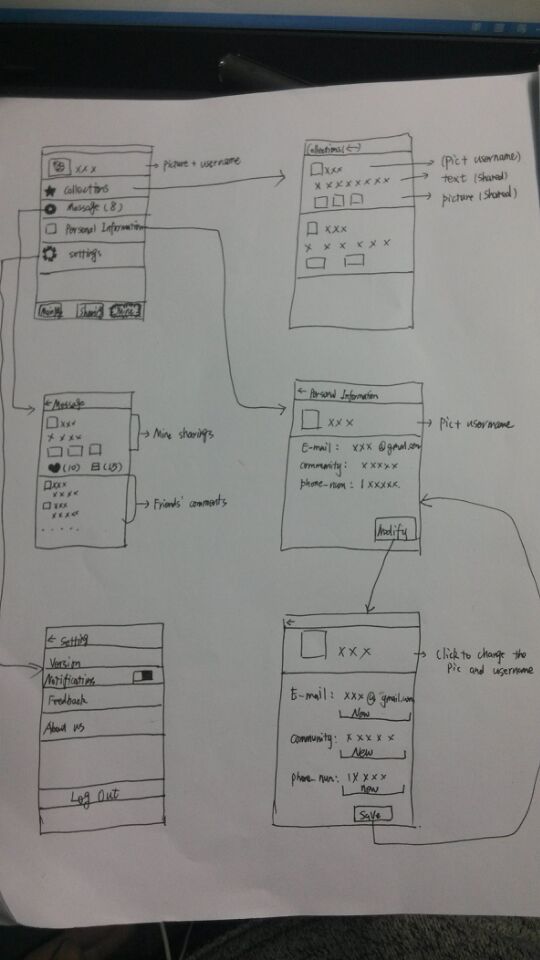 xxx
picture + username
★ collections
Message (8)
Personal Information
settings
Sharing
Collections (←)
xxx
(Pic + username)
x x x x x x x x
text (shared)
picture (shared)
xxx
x x x x x x
← Message
xxx
x x x x
Mine sharings
♥(10) (15)
xxx
x x x x
xxx
x x x x
Friends' comments
. . . . .
← Personal Information
x x x
Pic + username
E-mail : xxx @gmail.com
community: x x x x x
phone-num : 1 x x x x x.
Modify
← Setting
Version
Notification
Feedback
About us
Log Out
←
x x x
Click to change the
Pic and username
E-mail : xxx @ gmail.com
New
community: x x x x x
New
phone-num: 1x x x x
new
Save